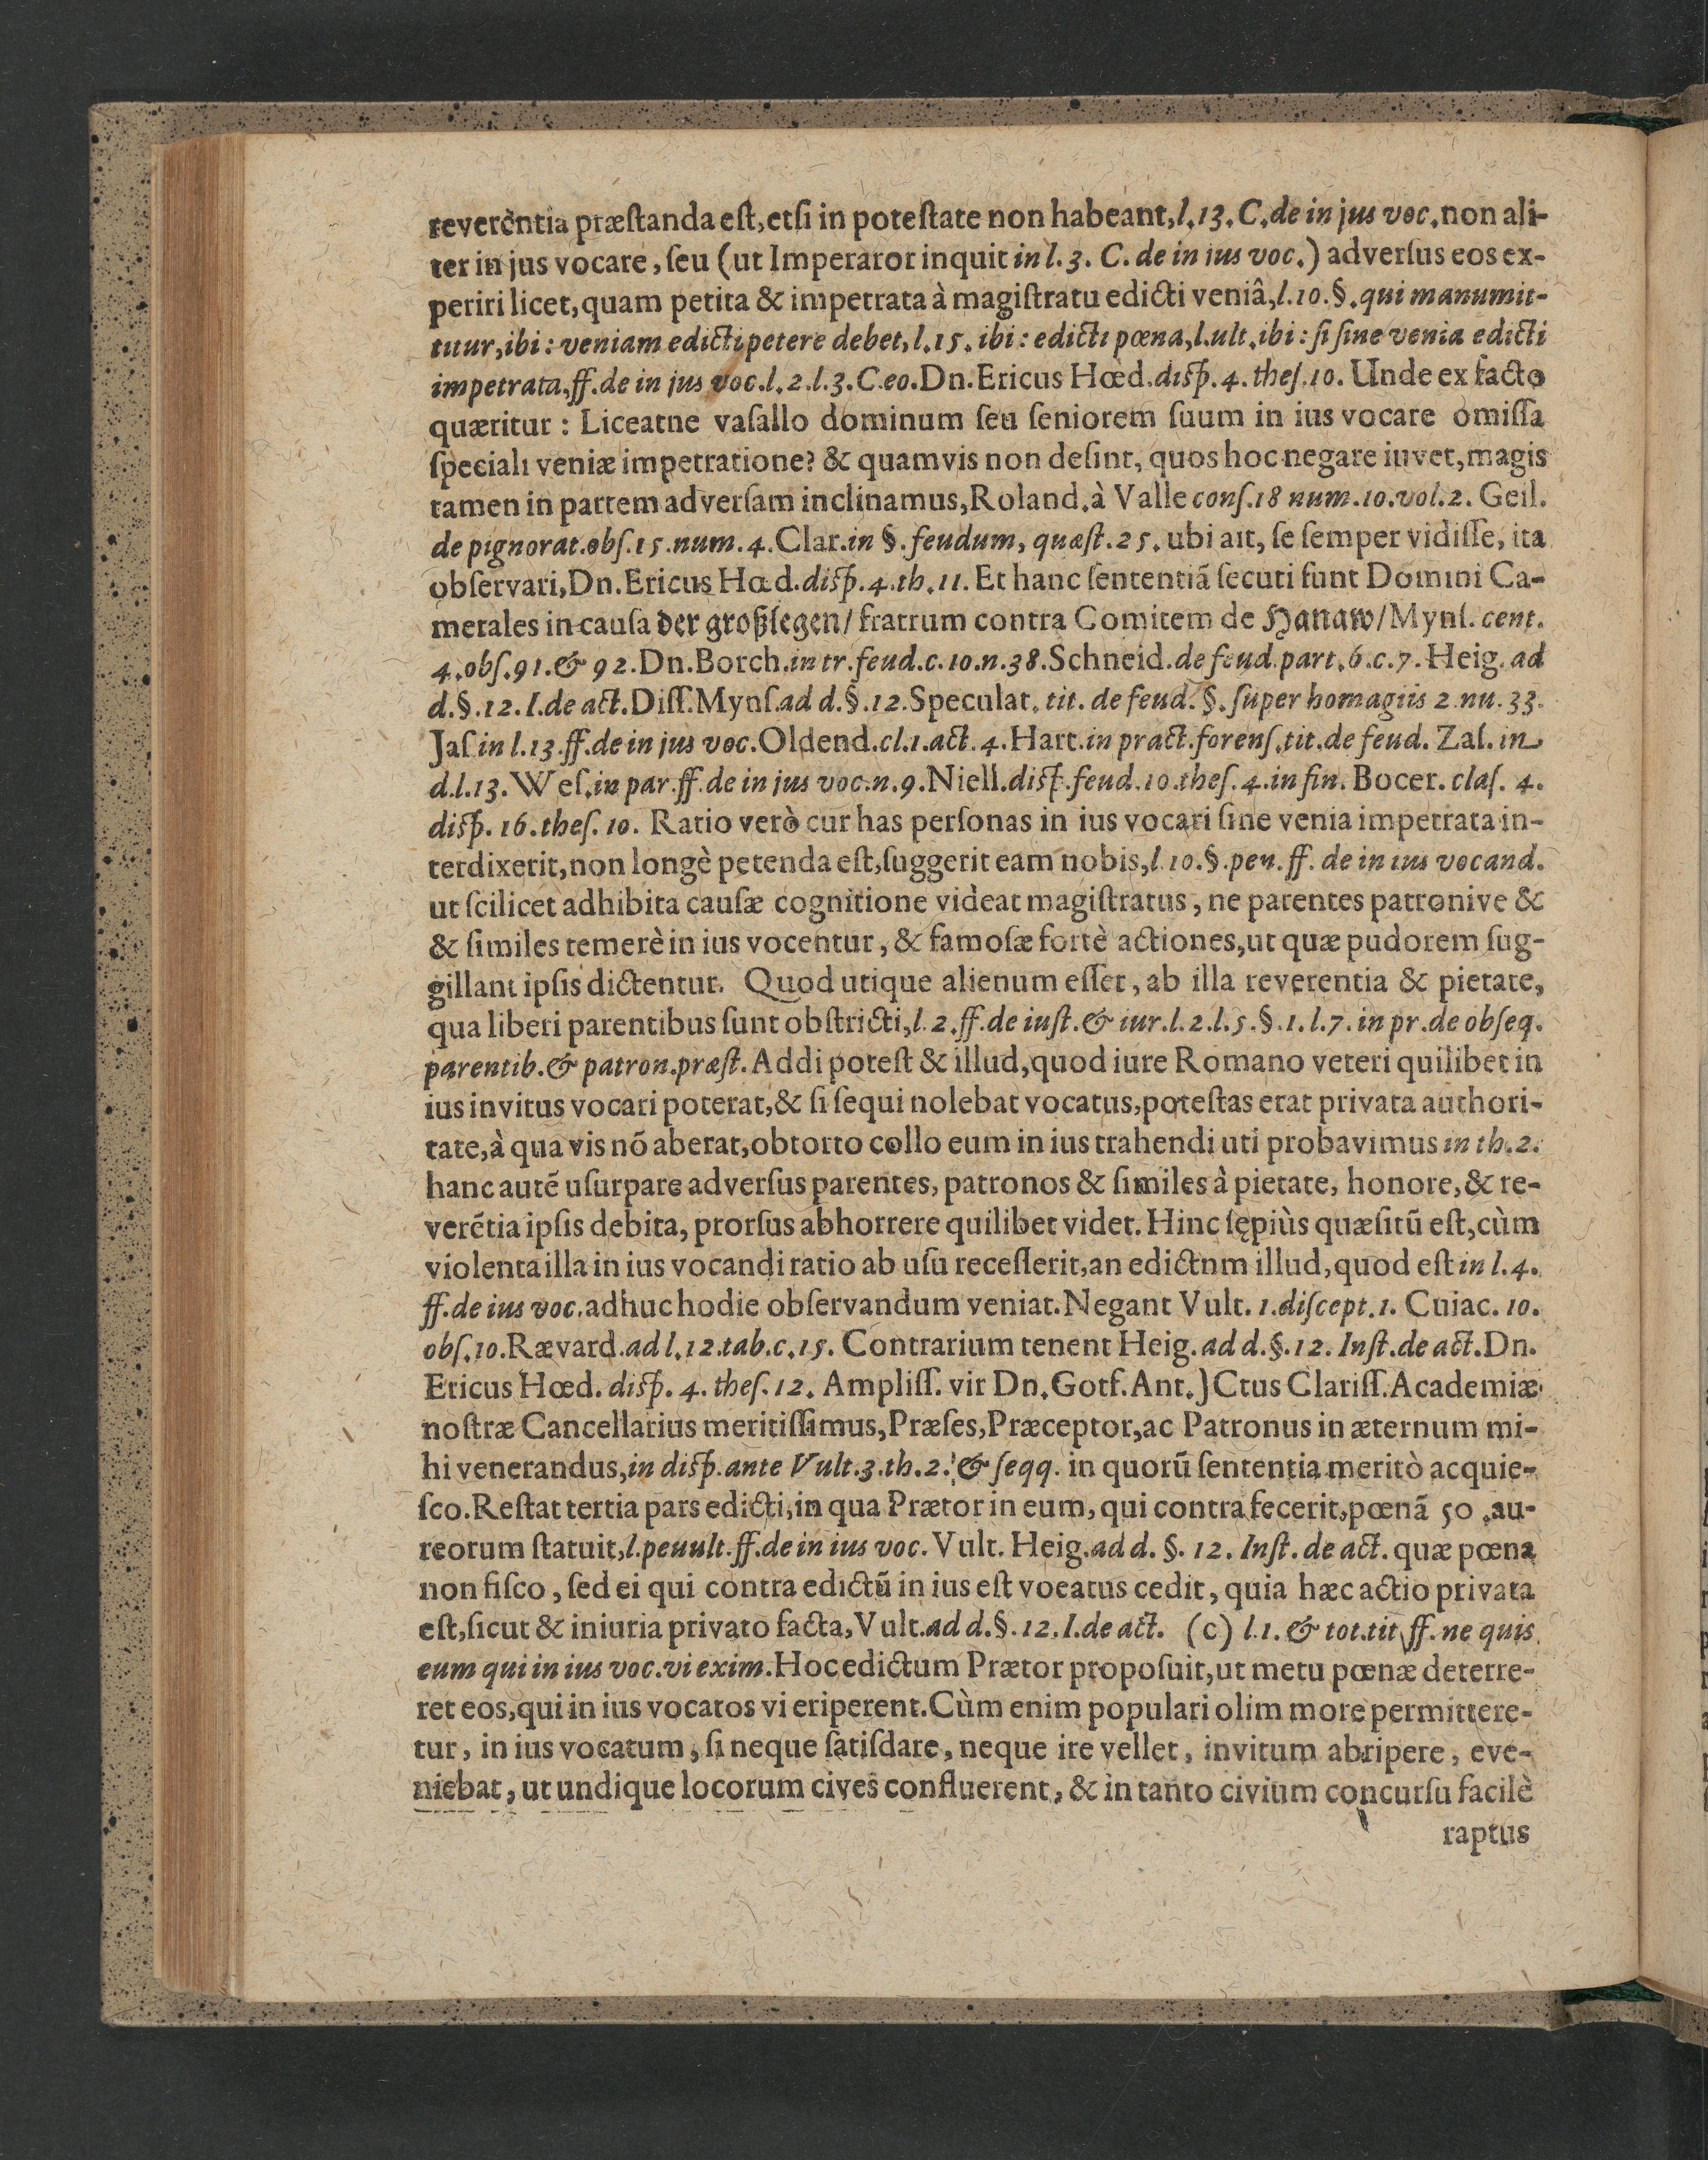 reverẽntia præſtanda eſt, etſi in poteſtate non habeant, l. 13. C. de in jus voc. non ali-
ter in jus vocare, ſeu (ut Imperaror inquit in l. 3. C. de in ius voc.) adverſus eos ex-
periri licet, quam petita & impetrata à magiſtratu edicti veniâ, l. 10. §. qui manumit-
titur, ibi: veniam edicti petere debet, l. 15. ibi: edicti pœna, l. ult. ibi: ſi ſine venia edicti
impetrata, ff. de in jus voc. l. 2. l. 3. C. eo. Dn. Ericus Hœd. diſp. 4. theſ. 10. Unde ex facto
quæritur: Liceatne vaſallo dominum ſeu ſeniorem ſuum in ius vocare omiſſa
ſpeciali veniæ impetratione? & quamvis non deſint, quos hoc negare iuvet, magis
tamen in partem adverſam inclinamus, Roland. à Valle conſ. 18 num. 10. vol. 2. Geil.
de pignorat. obſ. 15. num. 4. Clar. in §. feudum, quæſt. 25. ubi ait, ſe ſemper vidiſſe, ita
obſervari, Dn. Ericus Hœd. diſp. 4. th. 11. Et hanc ſententiã ſecuti ſunt Domini Ca-
merales in cauſa der großlegen/ fratrum contra Comitem de Hanaw/ Mynſ. cent.
4. obſ. 91. & 92. Dn. Borch. in tr. feud. c. 10. n. 38. Schneid. de feud. part. 6. c. 7. Heig. ad
d. §. 12. I. de act. Diſſ. Mynſ. ad d. §. 12. Speculat. tit. de feud. §. ſuper homagiis 2 nu. 33.
Jaſ in l. 13. ff. de in jus voc. Oldend. cl. 1. act. 4. Hart. in pract. forenſ. tit. de feud. Zaſ. in
d. l. 13. Weſ. in par. ff. de in jus voc. n. 9. Niell. diſp. feud. 10. theſ. 4. in fin. Bocer. claſ. 4.
diſp. 16. theſ. 10. Ratio verò cur has perſonas in ius vocari ſine venia impetrata in-
terdixerit, non longè petenda eſt, ſuggerit eam nobis, l. 10. §. pen. ff. de in ius vocand.
ut ſcilicet adhibita cauſæ cognitione videat magiſtratus, ne parentes patronive &
& ſimiles temerè in ius vocentur, & famoſæ fortè actiones, ut quæ pudorem ſug-
gillant ipſis dictentur. Quod utique alienum eſſet, ab illa reverentia & pietate,
qua liberi parentibus ſunt obſtricti, l. 2. ff. de iuſt. & iur. l. 2. l. 5. §. 1. l. 7. in pr. de obſeq.
parentib. & patron. præſt. Addi poteſt & illud, quod iure Romano veteri quilibet in
ius invitus vocari poterat, & ſi ſequi nolebat vocatus, poteſtas erat privata authori-
tate, à qua vis nõ aberat, obtorto collo eum in ius trahendi uti probavimus in th. 2.
hanc autẽ uſurpare adverſus parentes, patronos & ſimiles à pietate, honore, & re-
verẽtia ipſis debita, prorſus abhorrere quilibet videt. Hinc ſępiùs quæſitũ eſt, cùm
violenta illa in ius vocandi ratio ab uſu receſſerit, an edictnm illud, quod eſt in l. 4.
ff. de ius voc. adhuc hodie obſervandum veniat. Negant Vult. 1. diſcept. 1. Cuiac. 10.
obſ. 10. Rævard. ad l. 12. tab. c. 15. Contrarium tenent Heig. ad d. §. 12. Inſt. de act. Dn.
Ericus Hœd. diſp. 4. theſ. 12. Ampliſſ. vir Dn. Gotf. Ant. JCtus Clariſſ. Academiæ
noſtræ Cancellarius meritiſſimus, Præſes, Præceptor, ac Patronus in æternum mi-
hi venerandus, in diſp. ante Vult. 3. th. 2. & ſeqq. in quorũ ſententia meritò acquie-
ſco. Reſtat tertia pars edicti, in qua Prætor in eum, qui contra fecerit, pœnã 50. au-
reorum ſtatuit, l. peuult. ff. de in ius voc. Vult. Heig. ad d. §. 12. Inſt. de act. quæ pœna
non fiſco, ſed ei qui contra edictũ in ius eſt vocatus cedit, quia hæc actio privata
eſt, ſicut & iniuria privato facta, Vult. ad d. §. 12. I. de act. (c) l. 1. & tot. tit. ff. ne quis
eum qui in ius voc. vi exim. Hoc edictum Prætor propoſuit, ut metu pœnæ deterre-
ret eos, qui in ius vocatos vi eriperent. Cùm enim populari olim more permittere-
tur, in ius vocatum, ſi neque ſatiſdare, neque ire vellet, invitum abripere, eve-
niebat, ut undique locorum cives confluerent, & in tanto civium concurſu facilè
raptus